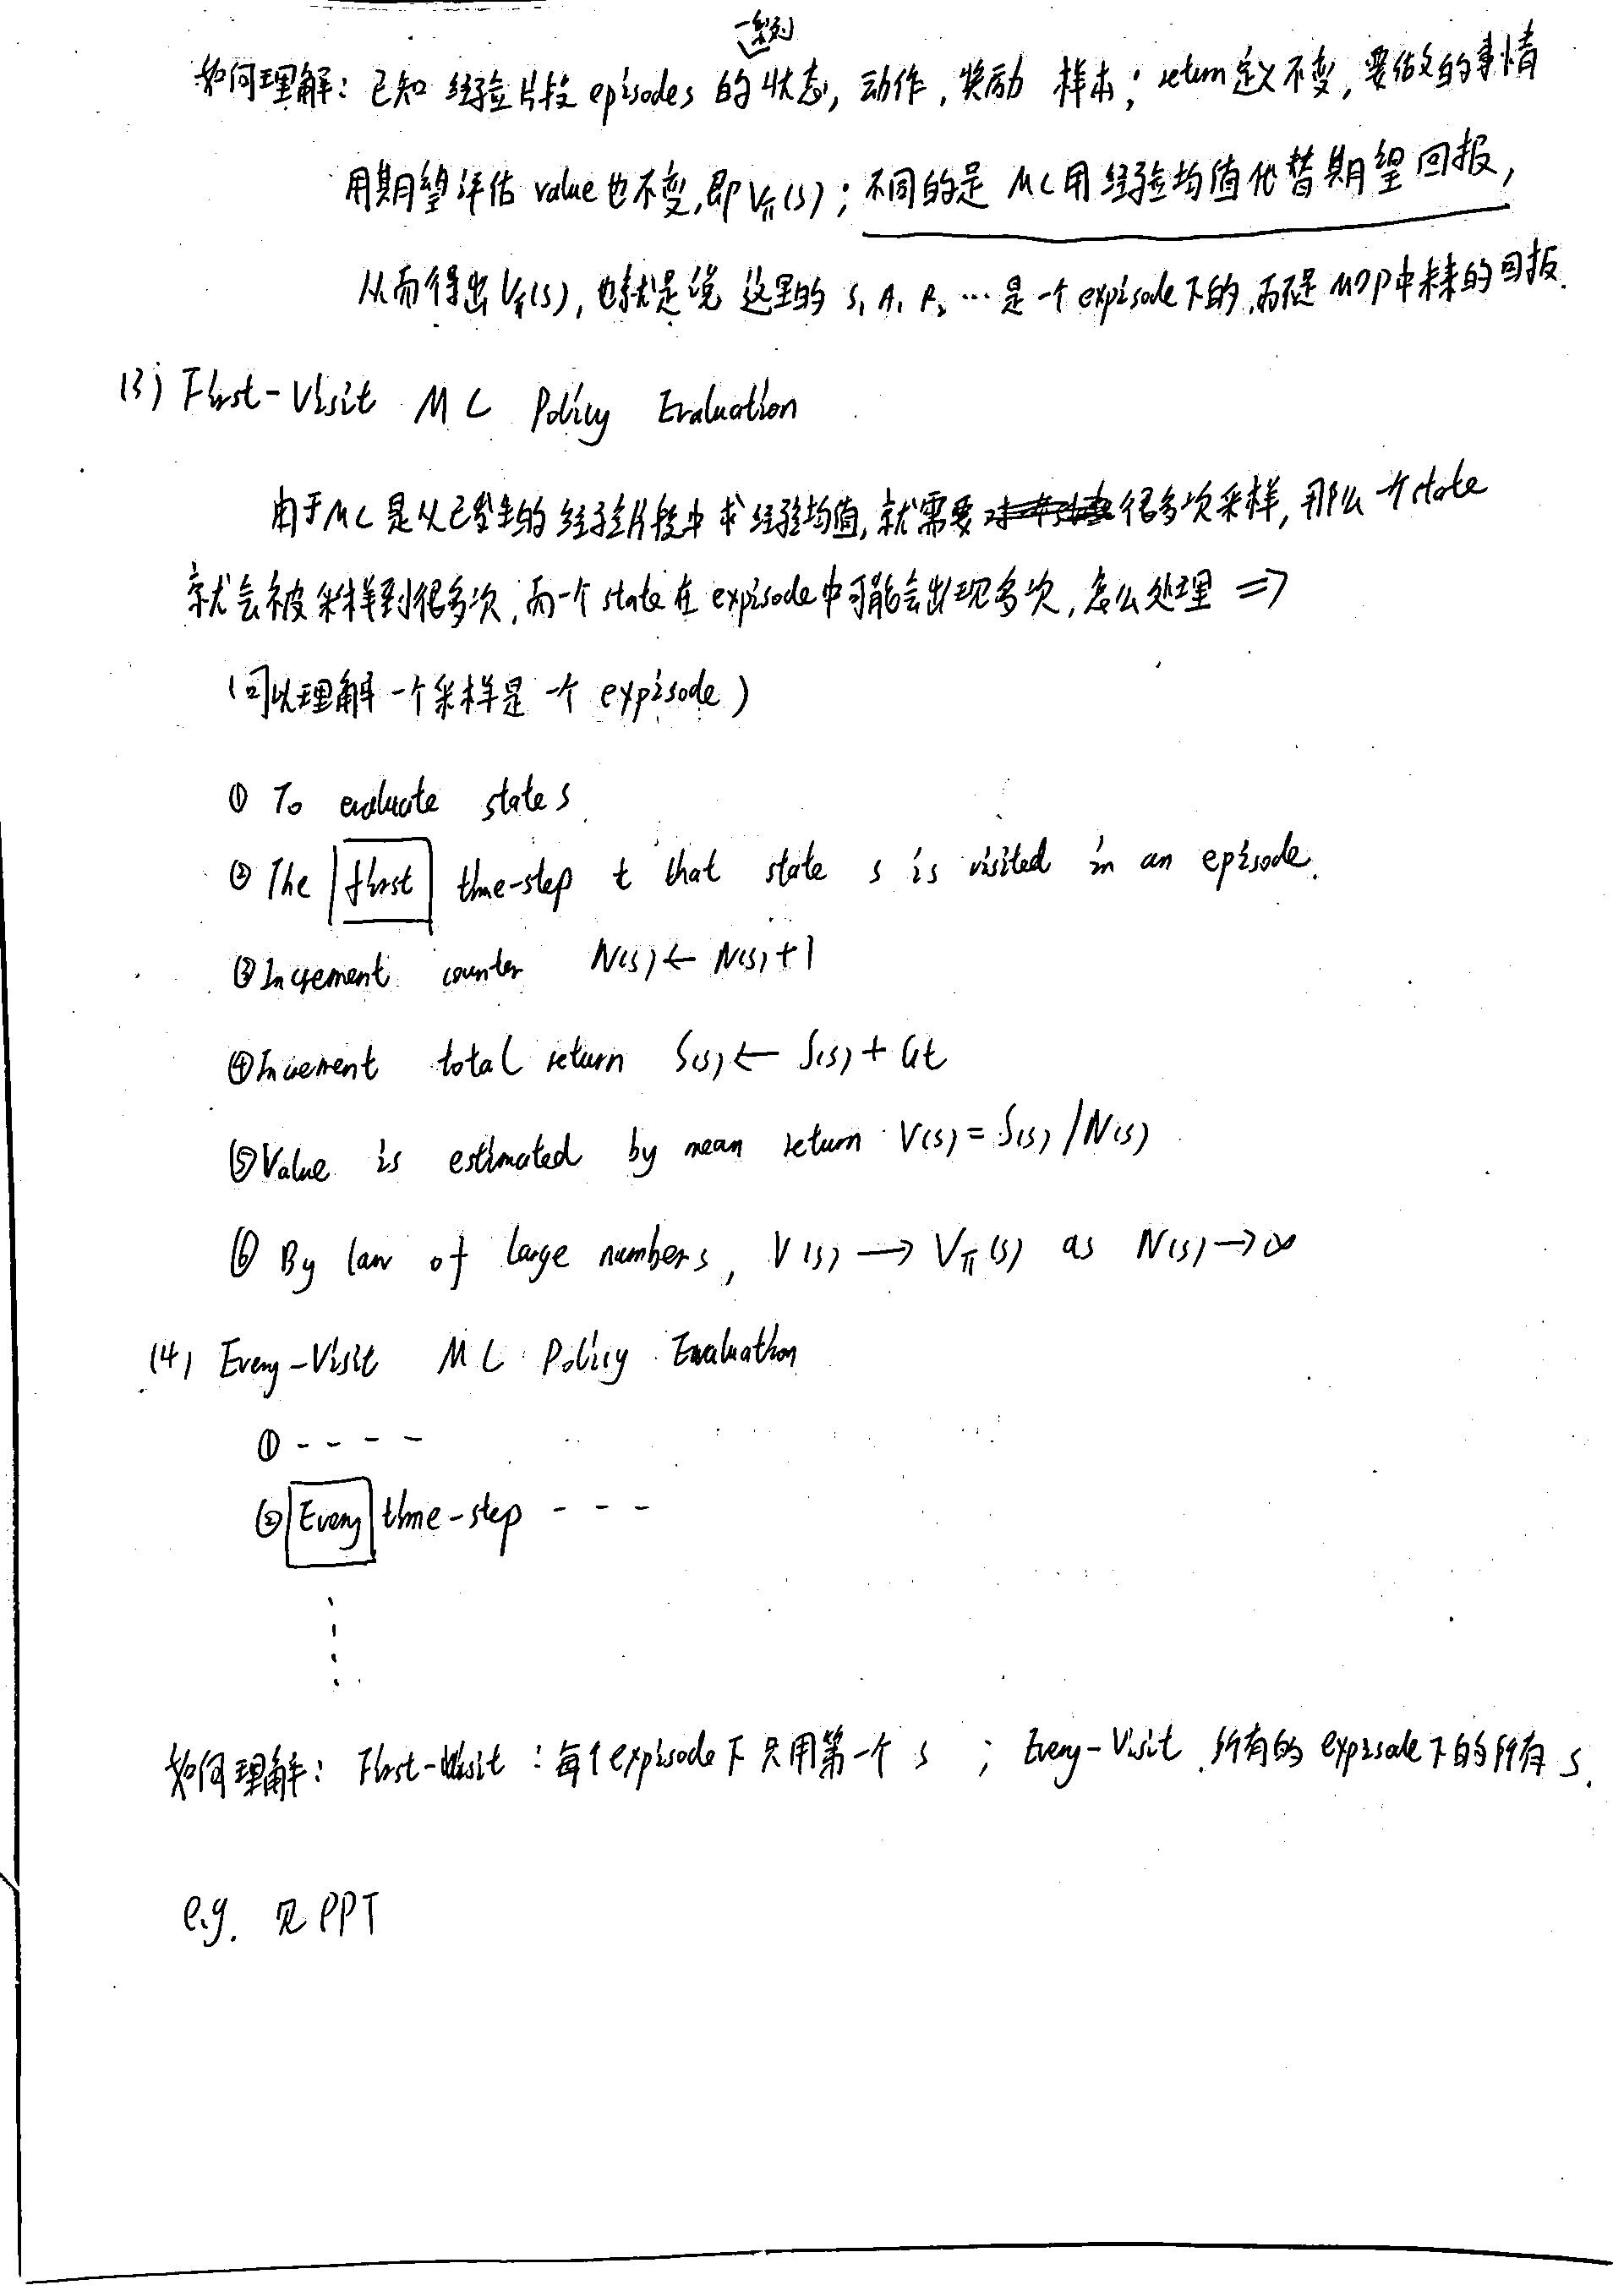 一系列
如何理解：已知 经验片段 episodes 的状态，动作，奖励 样本；return定义不变，要做的事情
用期望评估 value 也不变，即 Vπ(s)；不同的是 MC用经验均值代替期望回报，
从而得出 Vπ(s)，也就是说 这里的 S₁ A₁ R₂ … 是一个 expisode 下的，而不是 MDP中未来的回报.
(3) First-Visit MC Policy Evaluation
由于MC是从已发生的经验片段中求经验均值，就需要很多次采样，那么一个state
就会被采样到很多次，而一个state在expisode中可能会出现多次，怎么处理 =>
(可以理解一个采样是一个 expisode)
① To evaluate state s
② The first time-step t that state s is visited in an episode.
③ Increment counter N(s) ← N(s)+1
④ Increment total return S(s) ← S(s) + Gt
⑤ Value is estimated by mean return V(s) = S(s) / N(s)
⑥ By law of large numbers, V(s) → Vπ(s) as N(s) → ∞
(4) Every-Visit MC Policy Evaluation
① - - - -
② Every time-step - - -
如何理解： First-Visit：每个expisode下只用第一个 s ； Every-Visit 所有的 expisode下的所有 s.
e.g. 见 PPT